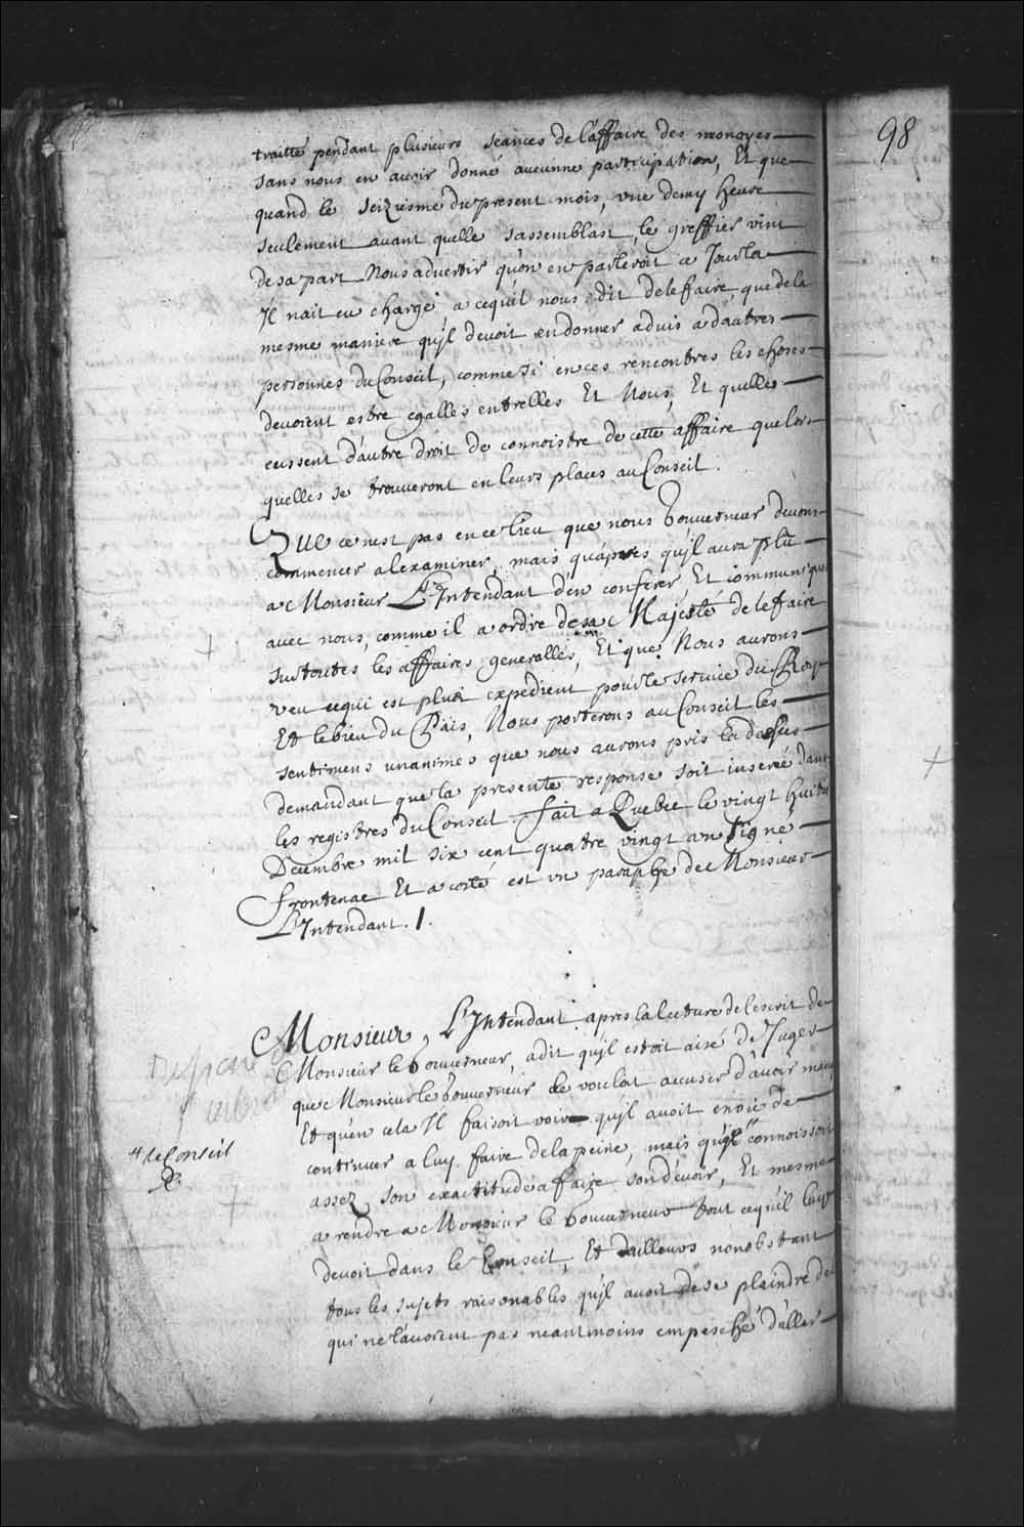 98
traitté pendant plusieurs seances de l'affaire des monoyes
sans nous en auoir donné aucunne participation, Et que
quand le seiziesme du present mois, vne demy heure
seulement auant quelle sassemblast, le greffier vint
de sa part Nous aduertir qu'on en parleroit ce Jour la
Jl nait eu charge, a cequil nous adit delefaire que dela
mesme maniere quil deuoit en donner aduis a dautres
personnes du Conseil, comme si en ces rencontres les choses
deuoient estre egalles entrelles Et Nous, Et quelles
eussent d'autre droit de connoistre de cette affaire que lors
quelles se trouueront en leurs places au Conseil.
Que ce nest pas en ce lieu que nous Gouuerneur deuons
commencer a lexaminer, mais qu'apres quil aura plû
a Monsieur L'Intendant den conferer, Et communiquer
auec nous, comme il a ordre de sa Majesté de le faire
sur toutes les affaires generalles, Et que Nous aurons
veu cequi est plus expedient pour le seruice du Roy
Et le bien du Païs, Nous porterons au Conseil les
sentimens vnanimes que nous aurons pris la dessus
demandant que la presente response soit inserée dans
les registres du Conseil. fait a Quebec le vingt huit
Decembre mil six cent quatre vingt un Signé
Frontenac Et a costé est vn paraphe de Monsieur
L'Intendant. /.
Monsieur L'Intendant apres la lecture de lescrit de
Monsieur le Gouuerneur, adit quil estoit aisé de Juger
que Monsieur le Gouuerneur le vouloit accuser d'auoir
Et qu'en cela Il faisoit voir quil auoit enuie de
continuer a luy faire dela peine, mais que " connoissoit
" le Conseil
assez son exactitude a faire son deuoir, Et mesme
a rendre a Monsieur le Gouuerneur tout cequil luy
deuoit dans le Conseil, Et dailleurs nonobstant
tous les sujets raisonables quil auoit de se plaindre de
qui ne lauoient pas neantmoins empesché d'aller